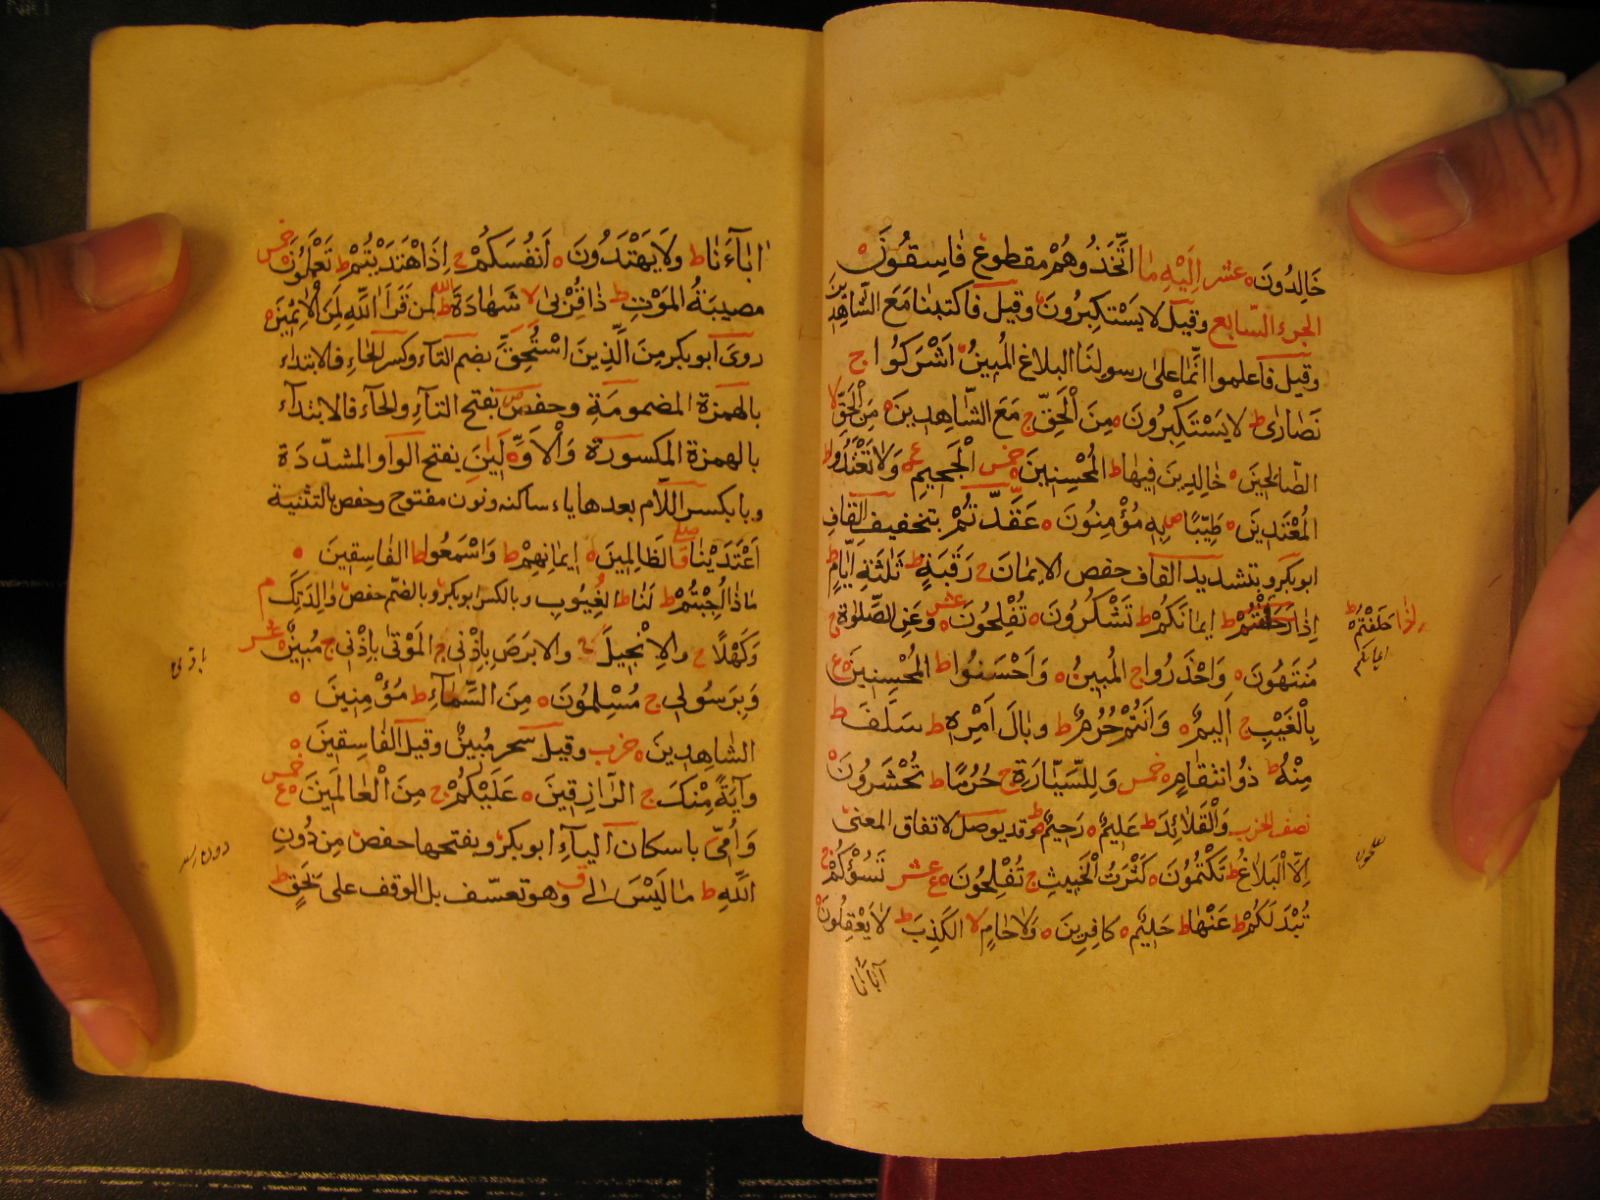 خَالِدُونَ ه عشر اِلَيْهِ مَا اتَّخَذُوهُمْ مقطوع فَاسِقُونَ ه
الجزء السابع وقيل لا يَسْتَكبِرُونَ وقيل فاكتبنا مَعَ الشَّاهِدِينَ
وقيل فاعلموا انَّما على رسولنَا البلاغ المُبينُ اَشْرَكُوا ج
نَصَارٰى ط لا يَسْتَكْبِرُونَ ه مِنَ الْحَقِّ ج مَعَ الشَّاهِدِينَ ه مِنَ الْحَقِّ لا
الصَّالِحِينَ ه خَالِدِينَ فِيهَا ط المُحْسِنِينَ ه خمس الْجَحِيمِ ع ه وَلَا تَعْتَدُوا ط
المُعْتَدِينَ ه طَيِّبًا ص بِهٖ مُؤْمِنُونَ ه عَقَّدتُّمْ بتخفيف القاف
ابوبكر وبتشديد القاف حفص الايمَانَ ج رَقَبَةٍ ط ثَلٰثَةِ اَيَّامٍ ط
اِذَا حَلَفْتُمْ ط ايمانَكُمْ ط تَشْكُرُونَ ه تُفْلِحُونَ ه عشر وَعَنِ الصَّلٰوةِ ج
مُنتَهُونَ ه وَاحْذَرُوا ج المُبينُ ه وَاَحْسَنُوا ط المُحْسِنِينَ ه ع
بِالْغَيْبِ ج اَلِيمٌ ه وَاَنتُمْ حُرُمٌ ط وبَالَ اَمْرِهٖ ط سَلَفَ ط
مِنْهُ ط ذُو انتقَامٍ ه خمس وَلِلسَّيَّارَةِ ج حُرُمًا ط تُحْشَرُونَ ه
نصف الحزب وَالْقَلَائِدَ ط عَلِيمٌ ه رَحِيمٌ ط وقد يوصل لاتفاق المعنى
اِلَّا الْبَلَاغُ ط تَكْتُمُونَ ه كَثْرَتُ الْخَبِيثِ ج تُفْلِحُونَ ه ع عشر تَسُؤْكُمْ ج
تُبْدَ لَكُمْ ط عَنْهَا ط حَلِيمٌ ه كَافِرِينَ ه وَلَا حَامٍ لا الكَذِبَ ط لَا يَعْقِلُونَ ه
آبَاءَنَا
اِذَا حَلَفْتُمْ ط
ايمانكم
اٰبَآءَنَا ط وَلَا يَهْتَدُونَ ه اَنفُسَكُمْ ج اِذَا اهْتَدَيْتُمْ ط تَعْمَلُونَ ه خمس
مصيبَةُ المَوْتِ ط ذَا قُرْبٰى لا شَهَادَةَ ط اللّٰه لمن قَرَأ اللهِ لَمِنَ الْاٰثِمِينَ ه
روىَ ابوبكر مِنَ الَّذِينَ اسْتُحِقَّ بضم التآء وكسر الحَاءِ فالابتداء
بالهمزة المضمومَةِ وحفص بفتح التآءِ والحَآء فالابتدآء
بالهمزة المكسورَة وَالْاَوَّلِينَ بفتح الواو المشدّدَة
وبابكسر اللّام بعدها ياء ساكنه ونون مفتوح وحفص بالتثنية
اعْتَدَيْنَا صلى الظَالِمِينَ ه ايمَانِهِمْ ط وَاسْمَعُوا ط الفَاسِقِينَ ه
مَاذَا اُجِبْتُمْ ط لَنَا ط الغِيُوبِ وبالكسر ابوبكر وبالضّم حفص وَالِدَتِكَ م
وَكَهْلًا ج والاِنْجِيلَ ج والابرَصَ بِاِذْنى ج المَوْتٰى بِاِذْنى ج مُبِينٌ ه عشر
وَبِرَسُولى ج مُسْلِمُونَ ه مِنَ السَّمَآءِ ط مُؤْمِنِينَ ه
الشاهِدِينَ ه حزب وقيل سحر مُبينٌ وقيل الفَاسِقِينَ ه
وَآيَةً مِّنكَ ج الرَّازِقِينَ ه عَلَيْكُمْ ج مِنَ الْعَالَمِينَ ه ع خمس
وَاُمِّى باسكان اليَآءِ ابوبكر وبفتحها حفص مِن دُونِ
اللّٰهِ ط مَا لَيْسَ لى ق وهو تعسّف بل الوقف على بحَقٍّ ط
باذنى